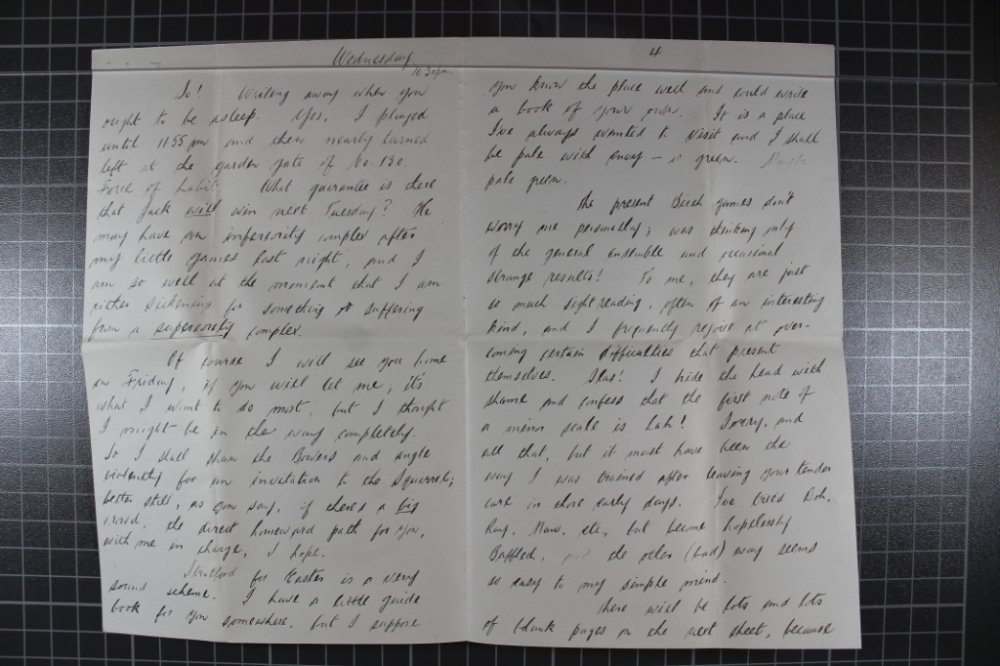 Wednesday
10.30pm.
So! Writing away when you
ought to be asleep. Yes, I played
until 11.55 pm and then nearly turned
left at the garden gate of No. 130.
Force of habit. What guarantee is there
that Jack will win next Tuesday? He
may have an inferiority complex after
my little games last night, and I
am so well at the moment that I am
either sickening for something or suffering
from a superiority complex.
Of course I will see you home
on Friday, if you will let me; it's
what I want to do most, but I thought
I might be in the way completely.
So I shall shun the Bowers and angle
violently for an invitation to the Squirrels;
better still, as you say, if there's a big
crowd, the direct homeward path for you,
with me in charge, I hope.
Stratford for Easter is a very
sound scheme. I have a little guide
book for you somewhere, but I suppose
4
you know the place well and could write
a book of your own. It is a place
I've always wanted to visit and I shall
be pale with envy — or green.
pale green.
The present Birch games don't
worry me personally; was thinking only
of the general ensemble and occasional
strange results! To me, they are just
so much sight reading, often of an interesting
kind, and I frequently rejoice at over-
coming certain difficulties that present
themselves. Alas! I hide the head with
shame and confess that the first note of
a minor scale is Lah! Sorry, and
all that, but it must have been the
way I was trained after leaving your tender
care in those early days. I've tried Doh,
Ray, Maw, etc, but become hopelessly
Baffled, and the other (bad) way seems
so easy to my simple mind.
There will be lots and lots
of blank pages on the next sheet, because